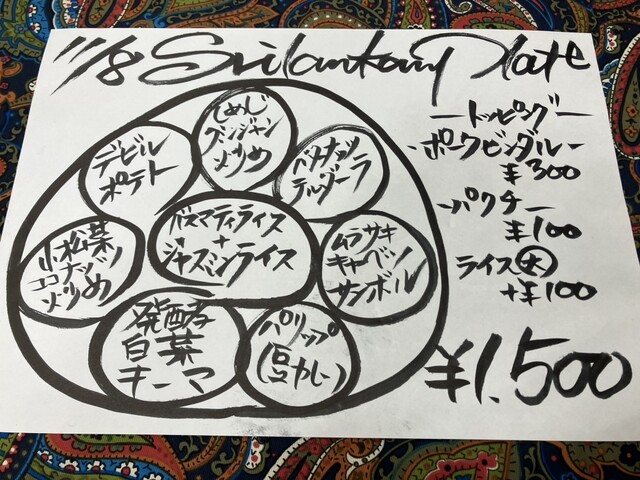 11/8 Srilankan Plate
しめじ
グンジャン
炒め
デビル
ポテト
バトナッツ
テルダーラ
バスマティライス
+
ジャスミンライス
小松菜
ココナッツ
炒め
ムラサキ
キャベツ
サンボル
発酵
白菜
キーマ
パリップ
(豆カレー)
ートッピングー
・ポークビンダルー
¥300
・パクチー
¥100
ライス大
+¥100
¥1,500